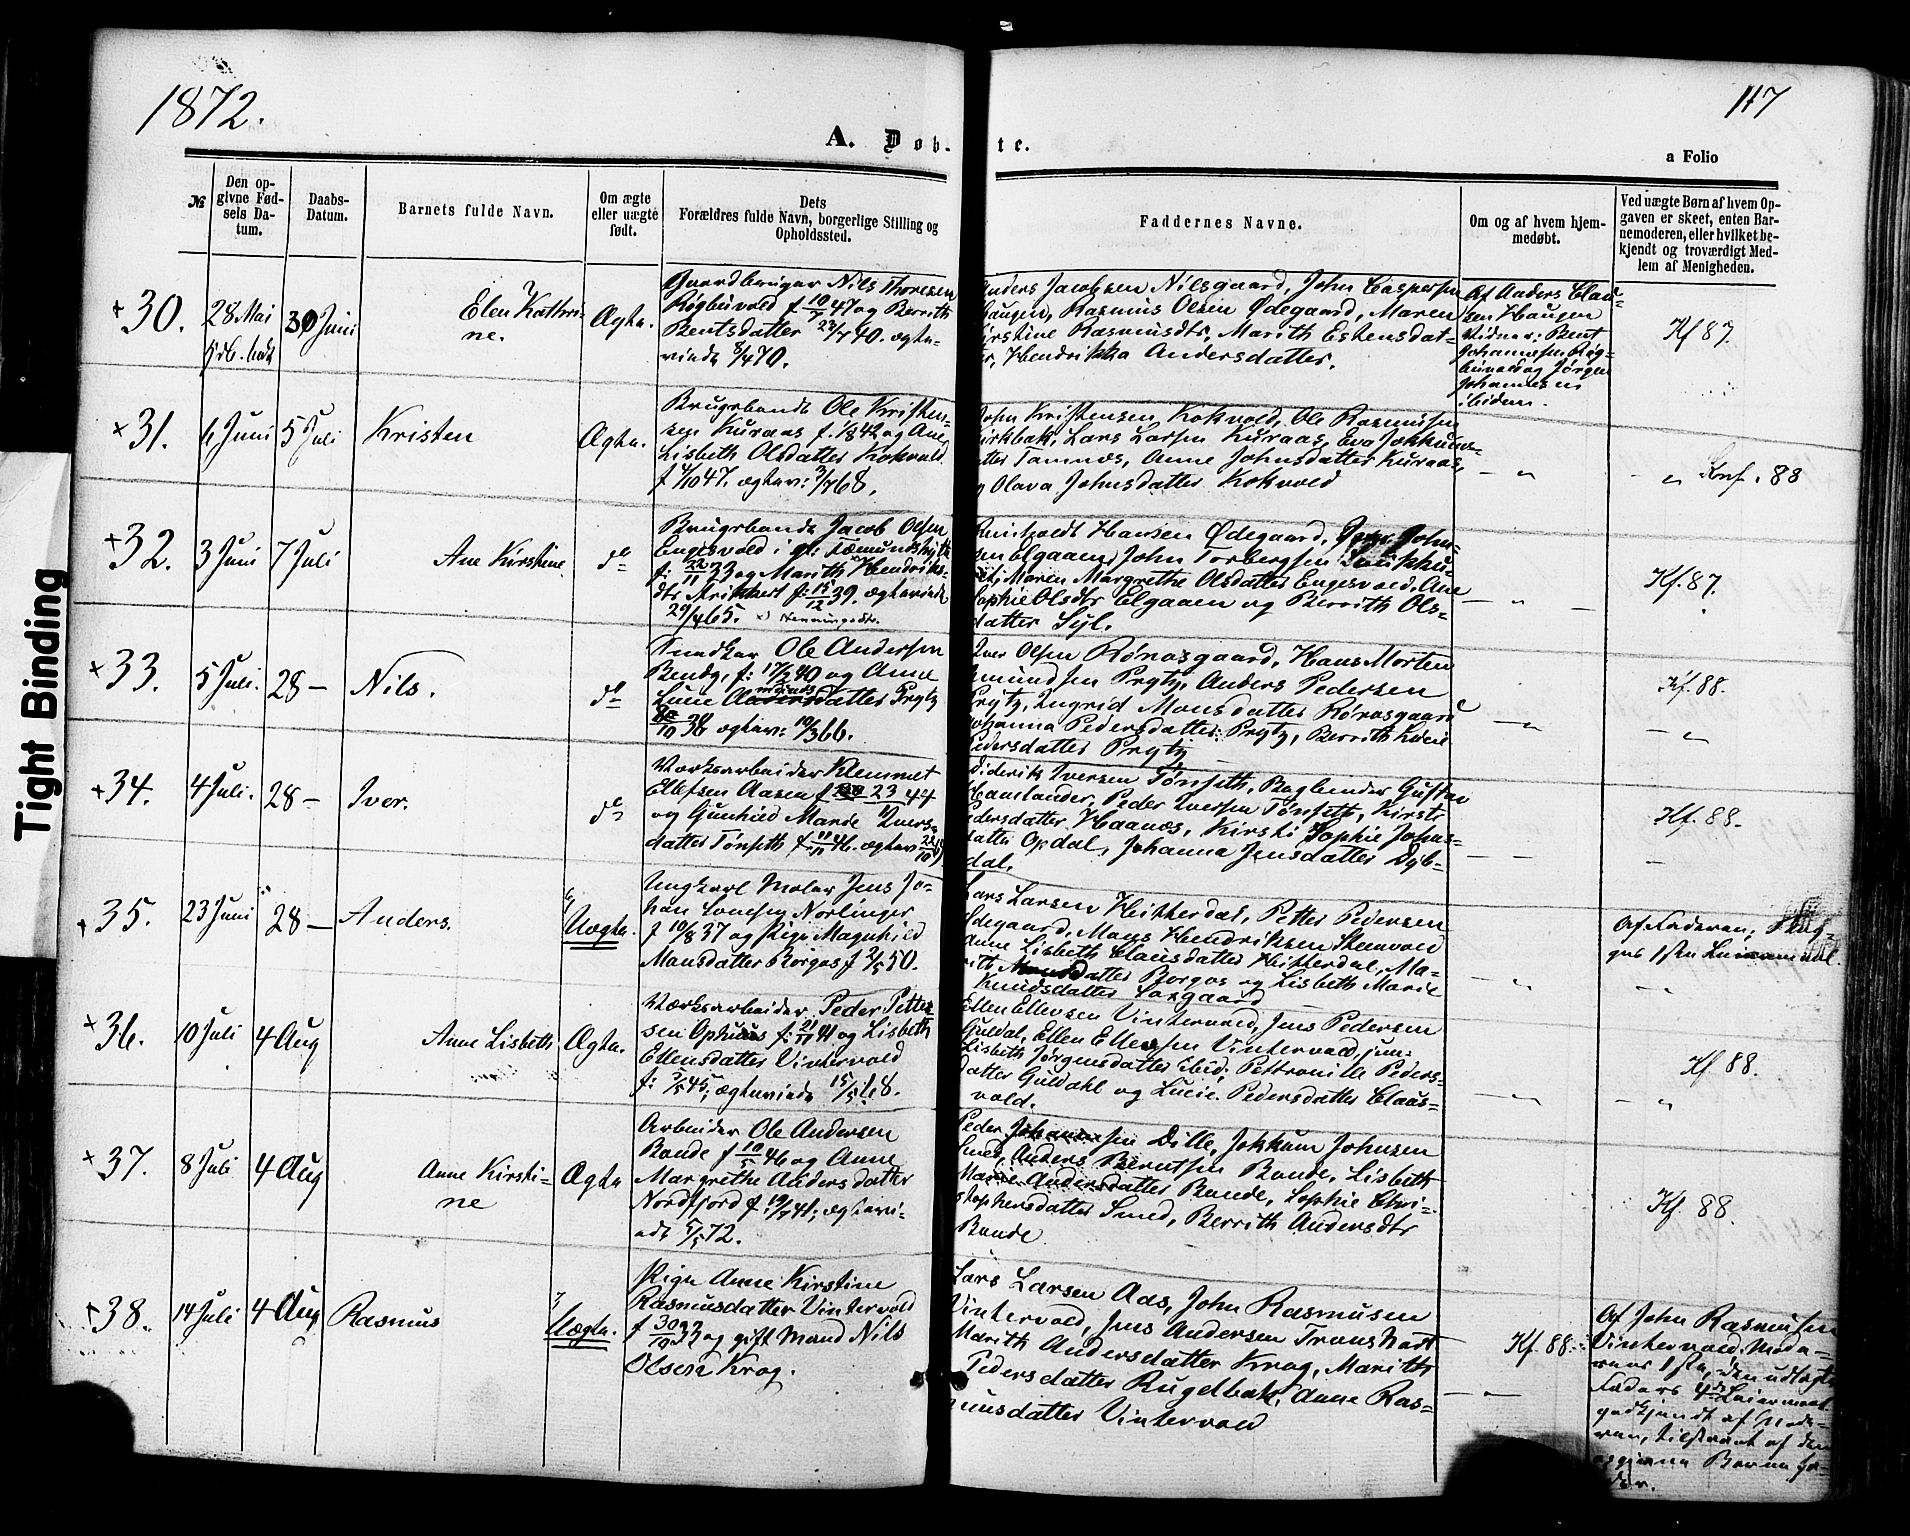 1872.
117
A. Døb-te.
a Folio
№
Den op-
givne Fød-
sels Da-
tum.
Daabs-
Datum.
Barnets fulde Navn.
Om ægte
eller uægte
født.
Dets
Forældres fulde Navn, borgerlige Stilling og
Opholdssted.
Faddernes Navne.
Om og af hvem hjem-
medøbt.
Ved uægte Børn af hvem Op-
gaven er skeet, enten Bar-
nemoderen, eller hvilket be-
kjendt og troværdigt Med-
lem af Menigheden.
+30.
28 Mai
30 Juni
Elen Kathri-
ne.
Ægte.
Gaardbruger Nils Thoresen
Røgbuvold f. 10/7 47 og Berrith
Bentsdatter 23/7 40. ægte-
vinde 8/4 70.
Anders Jacobsen Nilsgaard, John Caspersen
Haugen, Rasmus Olsen Ødegaard, Maren
Kirstine Rasmusdtr, Marith Estensdat-
ter, Hendrikka Andersdatter.
Af Anders Clau-
sen Haugen
Vidner: Bent
Johannesen Røg-
buvold og Jørgen
Johannesen
ibidem.
Kf 87.
+31.
6 Juni
5 Juli
Kristen
Ægte.
Brugsbonde Ole Kristen-
sen Kuraas f. 1842 og Ane
Lisbeth Olsdatter Kokvold
f 4/10 47. ægtev: 3/7 68.
John Kristensen Kokvold, Ole Rasmussen
Kirkbak, Lars Larsen Kuraas, Eva Jokkums-
datter Tamnæs, Anne Johnsdatter Kuraas,
og Olava Johnsdatter Kokvold
— "
- " Knf. 88
+32.
3 Juni
7 Juli
Ane Kirstine.
do
Brugsbonde Jacob Olsen
Engesvold i gl: Fæmundshytte
f. 22/11 33 og Marith x) Hendriks-
dtr Strikkert f: 15/12 39. ægtevinde
29/4 65. x) Henningsdtr.
Reinholdt Hansen Ødegaard, John-
sen Elgaaen, John Torbergsen
Maren Margrethe Olsdatter Engesvold, Ane
Sophie Olsdtr Elgaaen og Berrith Ols-
datter Syl.
— " —
Kf. 87.
+33.
5 Juli.
28 —
Nils.
do
Snedker Ole Andersen
Bendz, f: 17/2 40 og Anne
Lucie Andersdatter Prytz
38 ægtev: 10/3 66.
Iver Olsen Rønosgaard, Hans Morten
Amundsen Prytz, Anders Pedersen
Prytz, Ingrid Monsdatter Rønosgaard
Johanna Pedersdatter Prytz, Berrith Lucie
Pedersdatter Prytz
— "
Kf. 88.
- "
+34.
4 Juli.
28 —
Iver.
do
Værksarbeider Klemmet
Ellefsen Aasen f 23 44
og Gunhild Marie Ivers-
datter Tønseth f 11/11 46. ægtev 22/10
Diderik Iversen Tønseth, Bogbinder Gustav
Haanlander, Peder Iversen Tønseth, Kirsti
Pedersdatter Haanæs, Kirsti Sophie Johns-
datter Opdal, Johanna Jensdatter Dyb-
dal.
— —
Kf. 88.
—
+35.
23 Juni
28 —
Anders.
Uægte.
Ungkarl Maler Jens Jo-
han Norlinger
f 10/8 37 og Pige Magnhild
Monsdatter Borgos f 2/5 50.
Lars Larsen Hitterdal, Petter Pedersen
Ødegaard, Mons Hendriksen Steenvold
Anne Lisbeth Clausdatter Hitterdal, Ma-
rith Monsdatter Borgos og Lisbeth Marie
Knudsdatter Faxgaard
— "
Af Faderen; Beg-
ges 1ste Leiermaal.
— "
+36.
10 Juli
4 Aug
Anne Lisbeth
Ægte.
Værksarbeider Peder Petter-
sen Ophuus f: 21/11 41 og Lisbeth
Ellensdatter Vintervold
f: 5/5 45; ægtevinde 15/5 68.
Ellen Ellensen Vintervold, Jens Pedersen
Guldal, Ellen Ellensen Vintervold jun:
Lisbeth Jørgensdatter Ibid; Pettronille Peders-
datter Guldahl og Lucie Pedersdatter Claus-
vold.
— "
Kf 88.
- "
+37.
8 Juli
4 Aug
Anne Kirsti-
ne
Ægte
Arbeider Ole Andersen
Bonde f 10/5 46 og Anne
Margrethe Andersdatter
Nordfjord f 19/7 41; ægtevi-
ede 5/5 72.
Peder Johannesen Dille, Jokkum Johnsen
Smed, Anders Berntsen Bonde, Lisbeth
Marie Andersdatter Bonde, Sophie Chri-
stophersdatter Smed, Berrith Andersdtr
Bonde
Kf. 88.
+38.
14 Juli
4 Aug
Rasmus
Uægte.
Pige Anne Kirstine
Rasmusdatter Vintervold
f 30/10 32 og gift Mand Nils
Olsen Krog.
Lars Larsen Aas, John Rasmusen
Vintervold, Jens Andersen Tronshart
Marith Andersdatter Krog, Marith
Pedersdatter Rugelbak, Anne Ras-
musdatter Vintervold
— "
Kf. 88.
Af John Rasmussen
Vintervold, Mode-
rens 1ste, den udlagte
Faders 4de Leiermaal
godkjendt af Mode-
ren, tilskrevet af den
opgivne Barne fa-
der.
Tight Binding